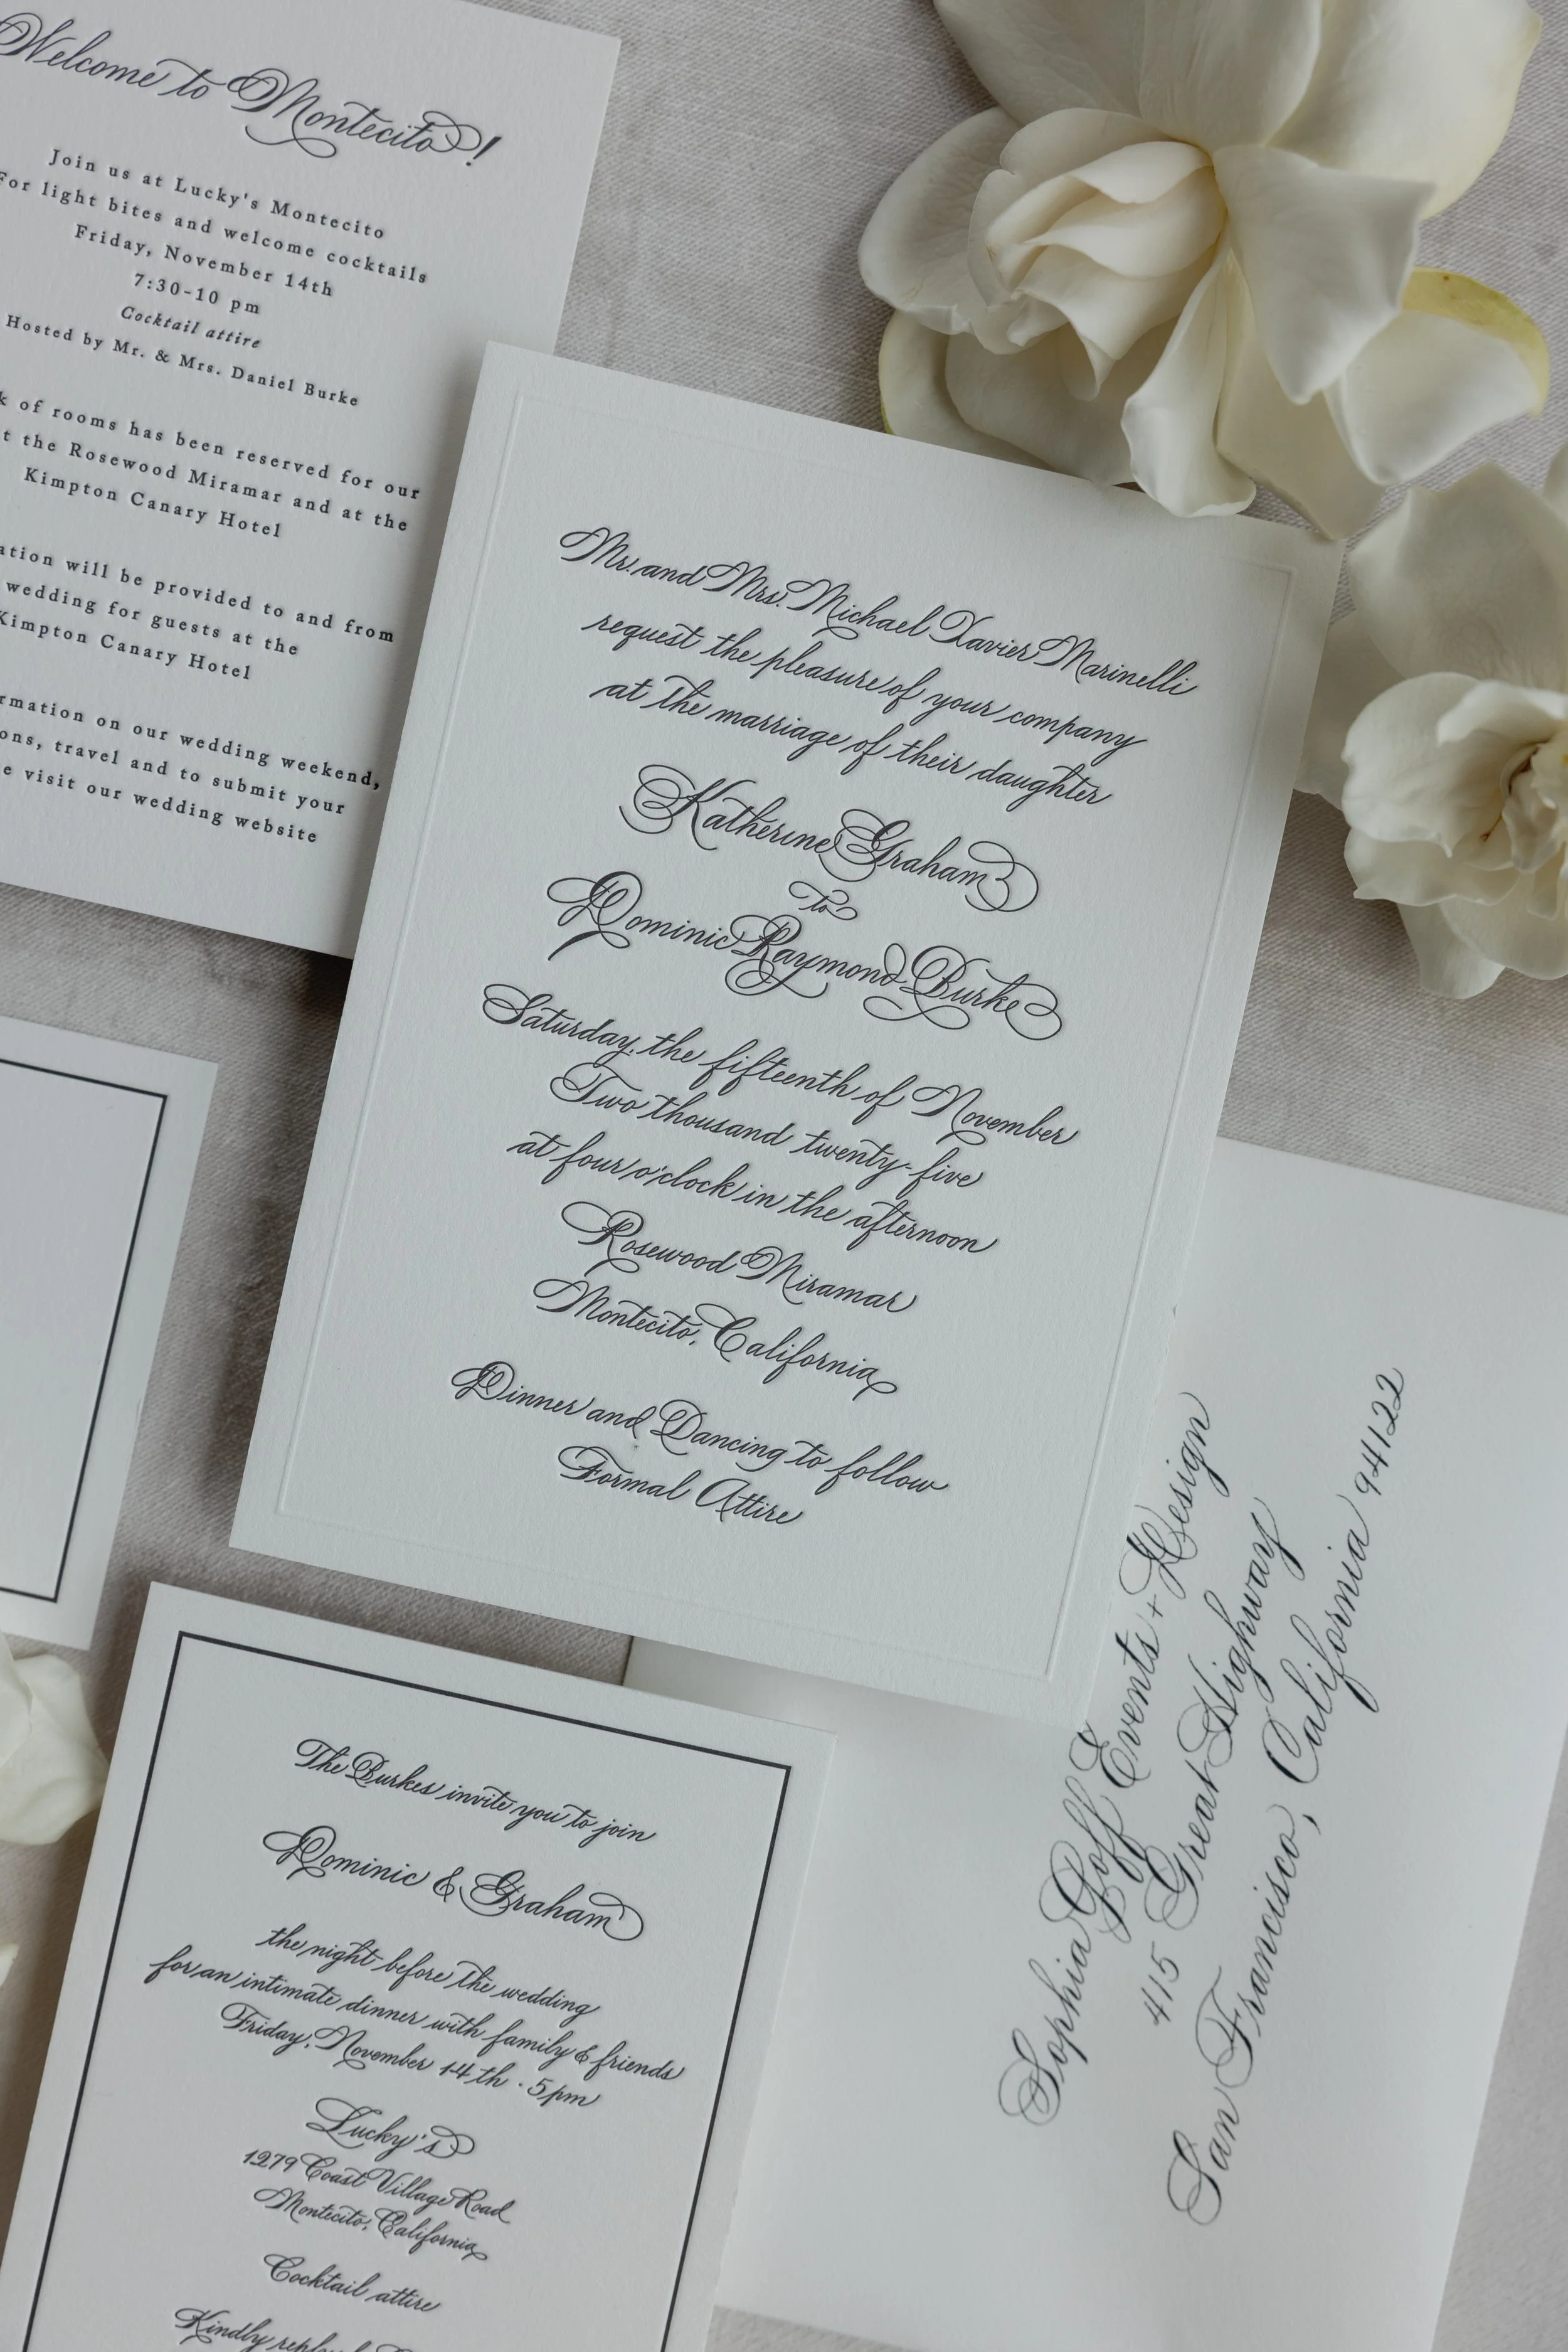 Welcome to Montecito!
Join us at Lucky's Montecito
For light bites and welcome cocktails
Friday, November 14th
7:30-10 pm
Cocktail attire
Hosted by Mr. & Mrs. Daniel Burke
of rooms has been reserved for our
the Rosewood Miramar and at the
Kimpton Canary Hotel
will be provided to and from
wedding for guests at the
Kimpton Canary Hotel
on our wedding weekend,
travel and to submit your
visit our wedding website
Mr. and Mrs. Michael Xavier Marinelli
request the pleasure of your company
at the marriage of their daughter
Katherine Graham
to
Dominic Raymond Burke
Saturday, the fifteenth of November
Two thousand twenty-five
at four o'clock in the afternoon
Rosewood Miramar
Montecito, California
Dinner and Dancing to follow
Formal Attire
The Burkes invite you to join
Dominic & Graham
the night before the wedding
for an intimate dinner with family & friends
Friday, November 14th · 5pm
Lucky's
1279 Coast Village Road
Montecito, California
Cocktail attire
Kindly
Sophia Goff Events + Design
415 Great Highway
San Francisco, California 94122